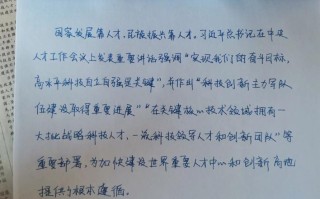 国家发展靠人才，民族振兴靠人才。习近平总书记在中央
人才工作会议上发表重要讲话强调“实现我们的奋斗目标，
高水平科技自立自强是关键”，并作出“科技创新主力军队
伍建设取得重要进展”“在关键核心技术领域拥有一
大批战略科技人才、一流科技领军人才和创新团队”等
重要部署，为加快建设世界重要人才中心和创新高地
提供了根本遵循。